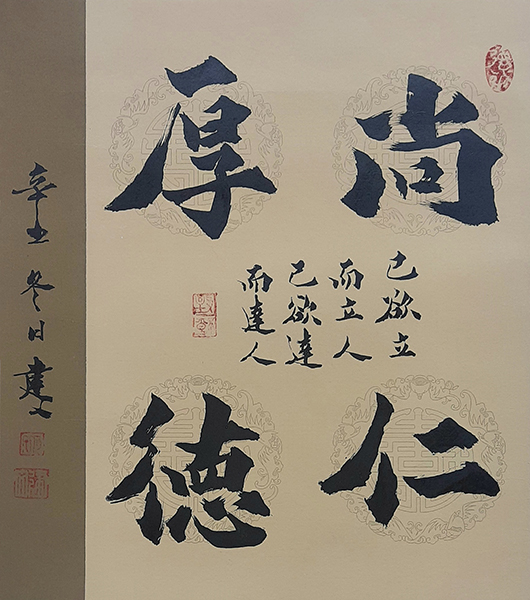 尚仁
厚德
己欲立
而立人
己欲達
而達人
辛丑冬日建文